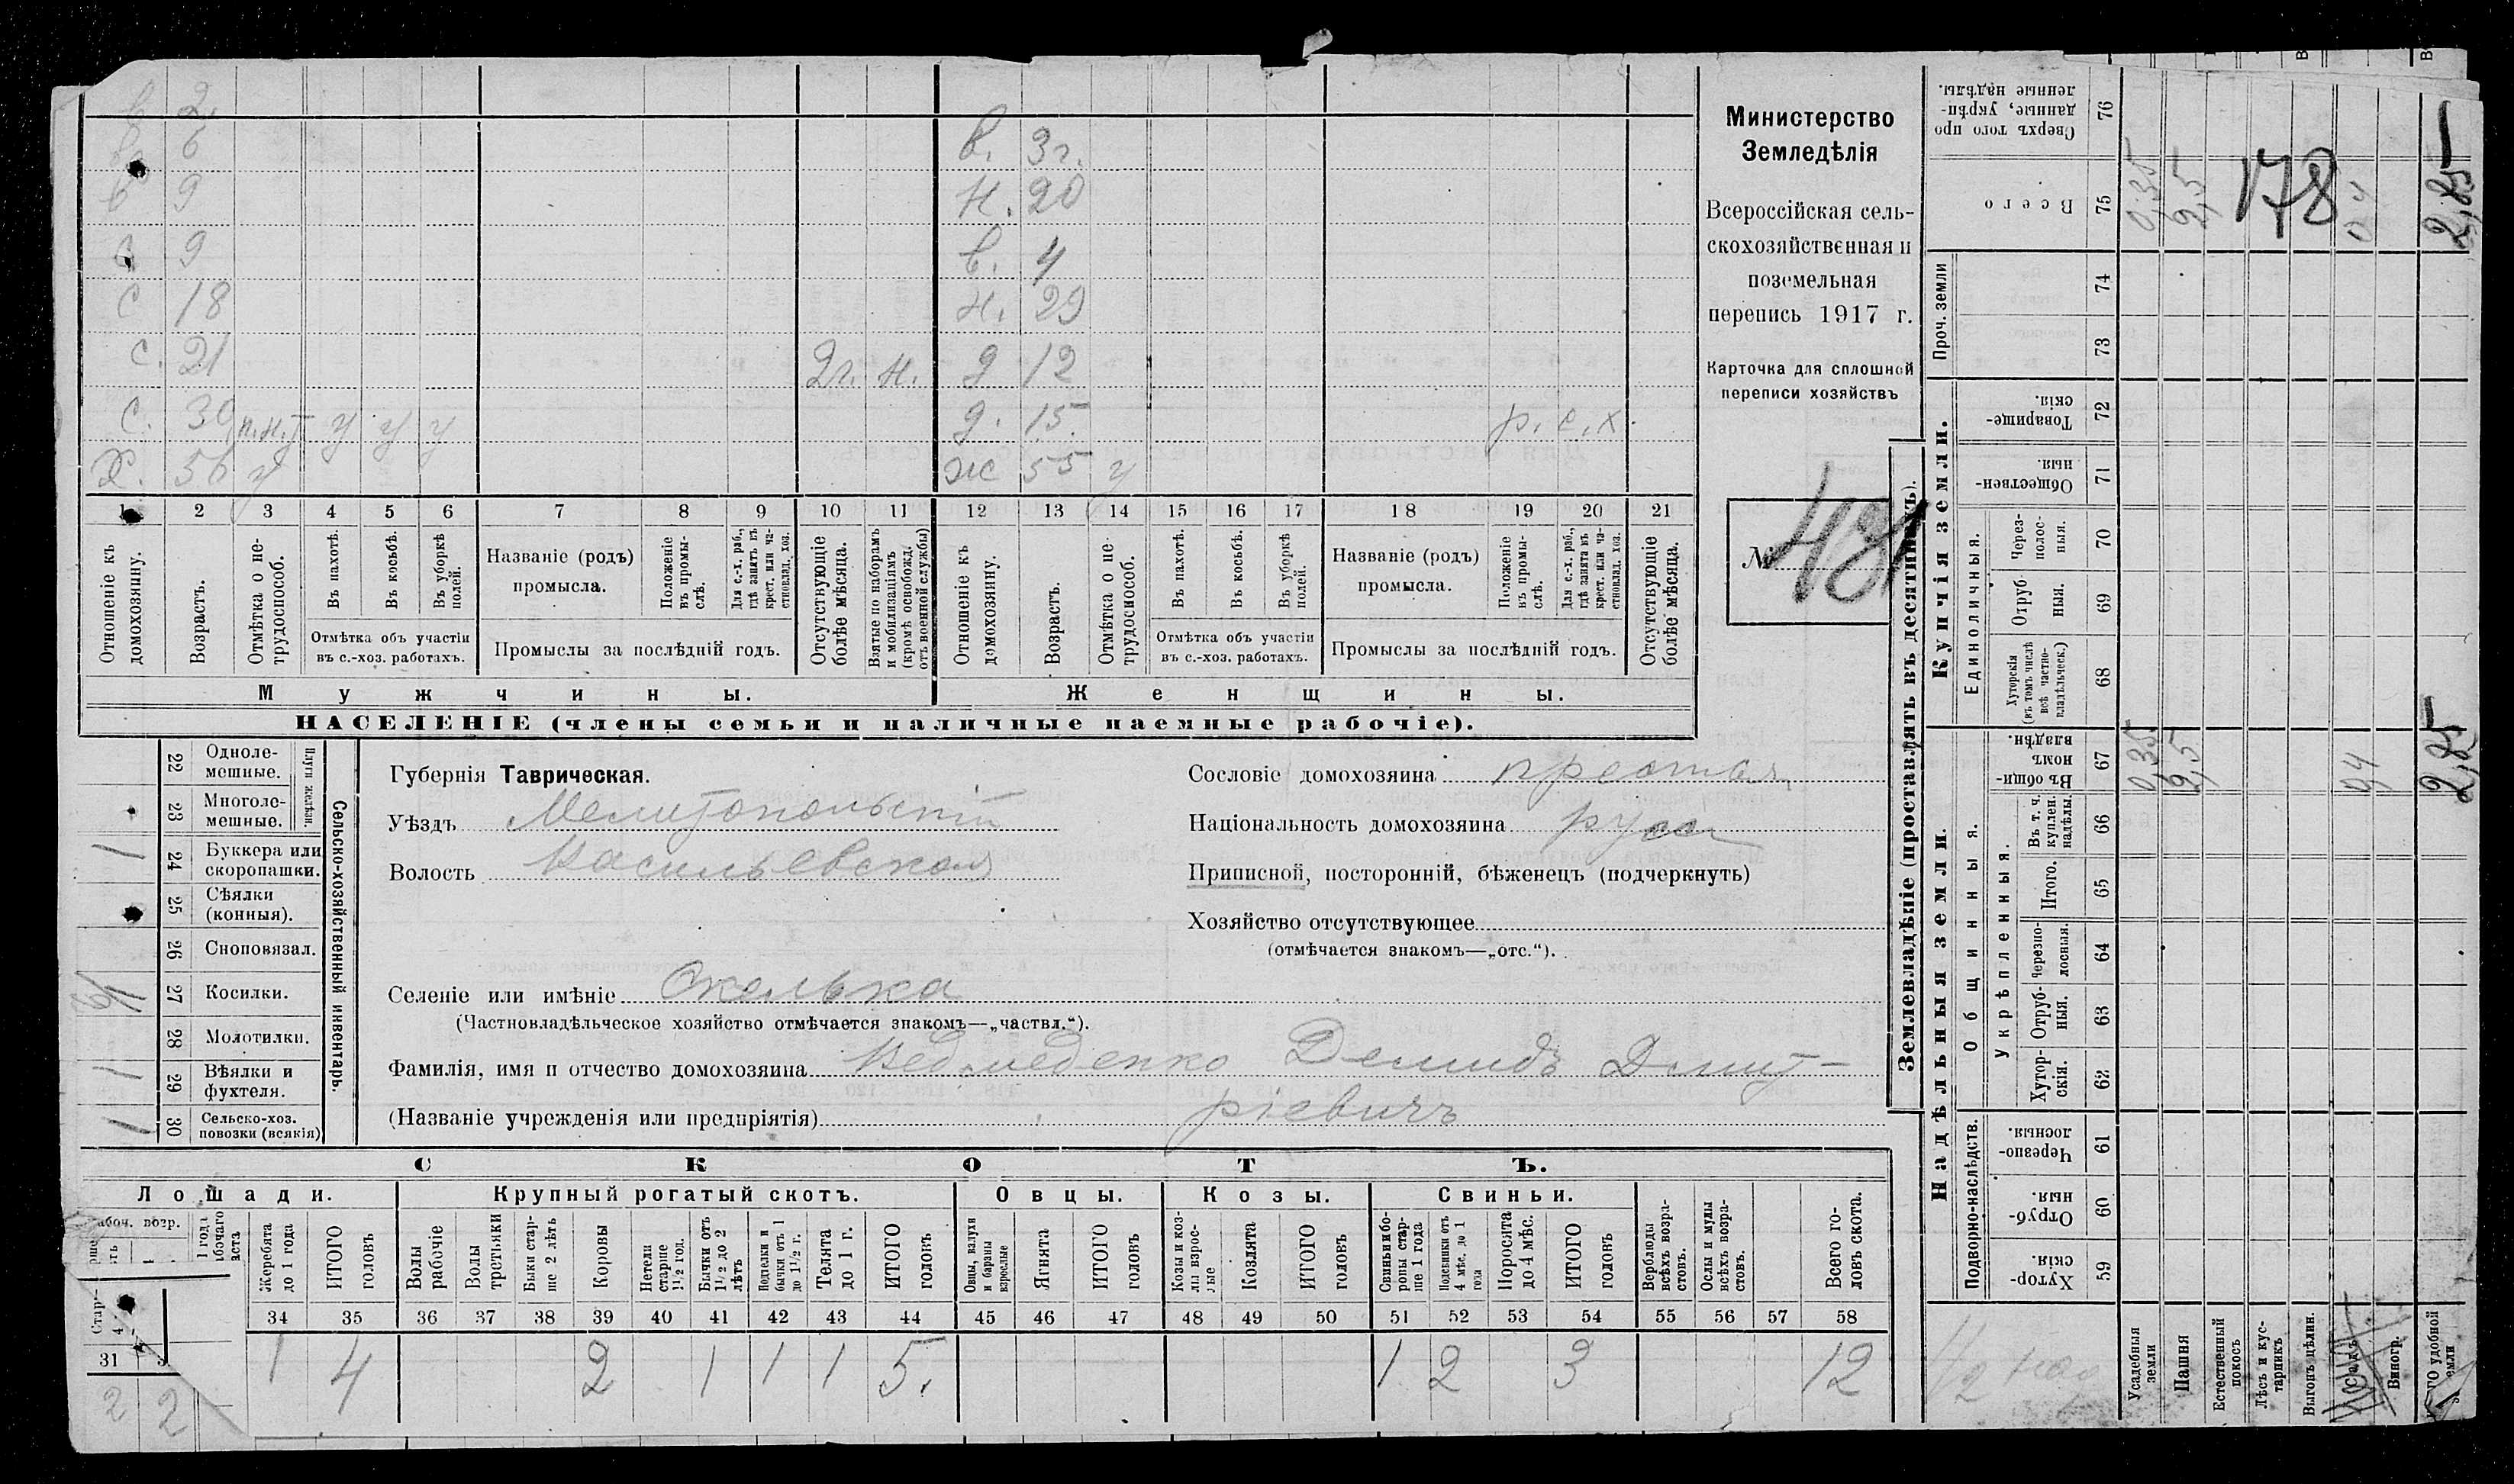 в 2
в 6
в 9
с 9
с 18
с. 21 2г. н.
с. 30 п.н.т у у у
Х. 56 у
в. 3г.
н. 20
в. 4
н. 29
д 12
д. 15. р. с. х.
ж 55 у
1 2 3 4 5 6 7 8 9 10 11 12 13 14 15 16 17 18 19 20 21
Отношеніе къ домохозяину.
Возрастъ.
Отмѣтка о нетрудоспособ.
Въ пахотѣ.
Въ косьбѣ.
Въ уборкѣ полей.
Отмѣтка объ участіи въ с.-хоз. работахъ.
Названіе (родъ) промысла.
Положеніе въ промыслѣ.
Для с.-х. раб., гдѣ занятъ въ крест. или частновлад. хоз.
Промыслы за послѣдній годъ.
Отсутствующіе болѣе мѣсяца.
Взятые по наборамъ и мобилизаціямъ (кромѣ освобожд. отъ военной службы)
Отношеніе къ домохозяину.
Возрастъ.
Отмѣтка о нетрудоспособ.
Въ пахотѣ.
Въ косьбѣ.
Въ уборкѣ полей.
Отмѣтка объ участіи въ с.-хоз. работахъ.
Названіе (родъ) промысла.
Положеніе въ промыслѣ.
Для с.-х. раб., гдѣ занятъ въ крест. или частновлад. хоз.
Промыслы за послѣдній годъ.
Отсутствующіе болѣе мѣсяца.
Мужчины. Женщины.
НАСЕЛЕНІЕ (члены семьи и наличные наемные рабочіе).
Министерство
Земледѣлія
Всероссійская сель-
скохозяйственная и
поземельная
перепись 1917 г.
Карточка для сплошной
переписи хозяйствъ
№ 481
Сельско-хозяйственный инвентарь.
Плуги желѣзн.
22 Одноле-
мешные.
23 Многоле-
мешные.
24 Буккера или
скоропашки. 1
25 Сѣялки
(конныя).
26 Сноповязал.
27 Косилки.
28 Молотилки.
29 Вѣялки и
фухтеля. 1
30 Сельско-хоз.
повозки (всякія) 1
Губернія Таврическая.
Уѣздъ Мелитопольскій
Волость Васильевская
Селеніе или имѣніе Скелька
(Частновладѣльческое хозяйство отмѣчается знакомъ—„частвл.“).
Фамилія, имя и отчество домохозяина Ведмеденко Демидъ Дмит-
(Названіе учрежденія или предпріятія) ріевичъ
Сословіе домохозяина
Національность домохозяина русс
Приписной, посторонній, бѣженецъ (подчеркнуть)
Хозяйство отсутствующее
(отмѣчается знакомъ—„отс.“).
СКОТЪ.
Лошади. Крупный рогатый скотъ. Овцы. Козы. Свиньи.
Жеребята до 1 года
ИТОГО головъ
Волы рабочіе
Волы третьяки
Быки старше 2 лѣтъ
Коровы
Нетели старше 1½ год.
Бычки отъ 1½ до 2 лѣтъ
Подтелки и бычки отъ 1 до 1½ г.
Телята до 1 г.
ИТОГО головъ
Овцы, валухи и бараны взрослые
Ягнята
ИТОГО головъ
Козы и козлы взрослые
Козлята
ИТОГО головъ
Свиньи боровы старше 1 года
Подсвинки отъ 4 мѣс. до 1 года
Поросята до 4 мѣс.
ИТОГО головъ
Верблюды всѣхъ возрастовъ.
Ослы и мулы всѣхъ возрастовъ.
Всего головъ скота.
31 34 35 36 37 38 39 40 41 42 43 44 45 46 47 48 49 50 51 52 53 54 55 56 57 58
2 2 1 4 2 1 1 1 5. 1 2 3 12
Землевладѣніе (проставлять въ десятинахъ).
Сверхъ того проданные, укрѣпленные надѣлы. 76
Всего 75 0,35 2,5 178 2,85
Проч. земли 74 73
Купчія земли.
Товарищескія. 72
Общественныя. 71
Единоличныя.
Черезполосныя. 70
Отрубныя. 69
Хуторскія (въ томъ числѣ всѣ частновладѣльческ.) 68
Надѣльныя земли.
Общинныя.
Въ общинномъ владѣн. 67 0,35 2,5 2,85
Укрѣпленныя.
Въ т. ч. куплен. надѣлы. 66
Итого. 65
Черезполосныя. 64
Отрубныя. 63
Хуторскія. 62
Подворно-наслѣдств.
Черезполосныя. 61
Отрубныя. 60
Хуторскія. 59
Усадебныя земли
Пашня
Естественный покосъ
Лѣсъ и кустарникъ
Выгонъ цѣлин.
Виногр.